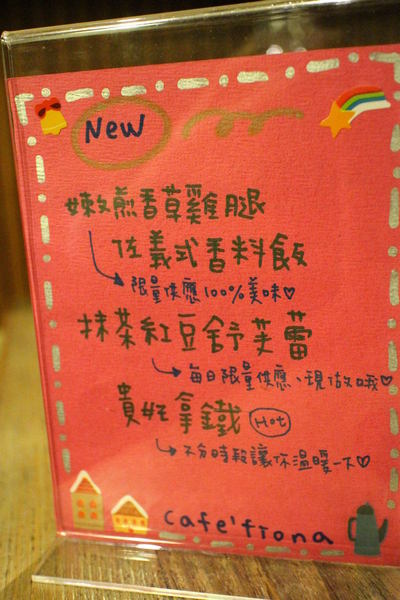 New
嫩煎香草雞腿
佐義式香料飯
限量供應100%美味♡
抹茶紅豆舒芙蕾
每日限量供應、現做哦♡
貴妃拿鐵 Hot
不分時段讓你溫暖一下♡
Cafe'fiona